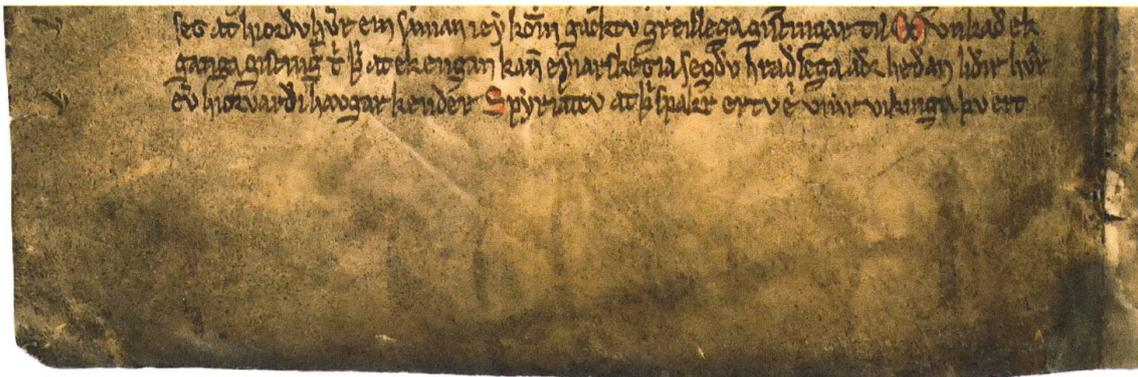 ſeɢ at hiordu hũr ein ſaman i ey kom̄ gacktv greidlega giſtingar til Munkad ek
ganga giſting t̃ þ̃ at ek engan kan̄ eyiarſkeɢia ſegdv hradlega adr hedan lidir hũr
erv hiorvardi havgar kender Spyriattv at þ̃ ſpakr ertv ẽ vinr vikinga þv ert